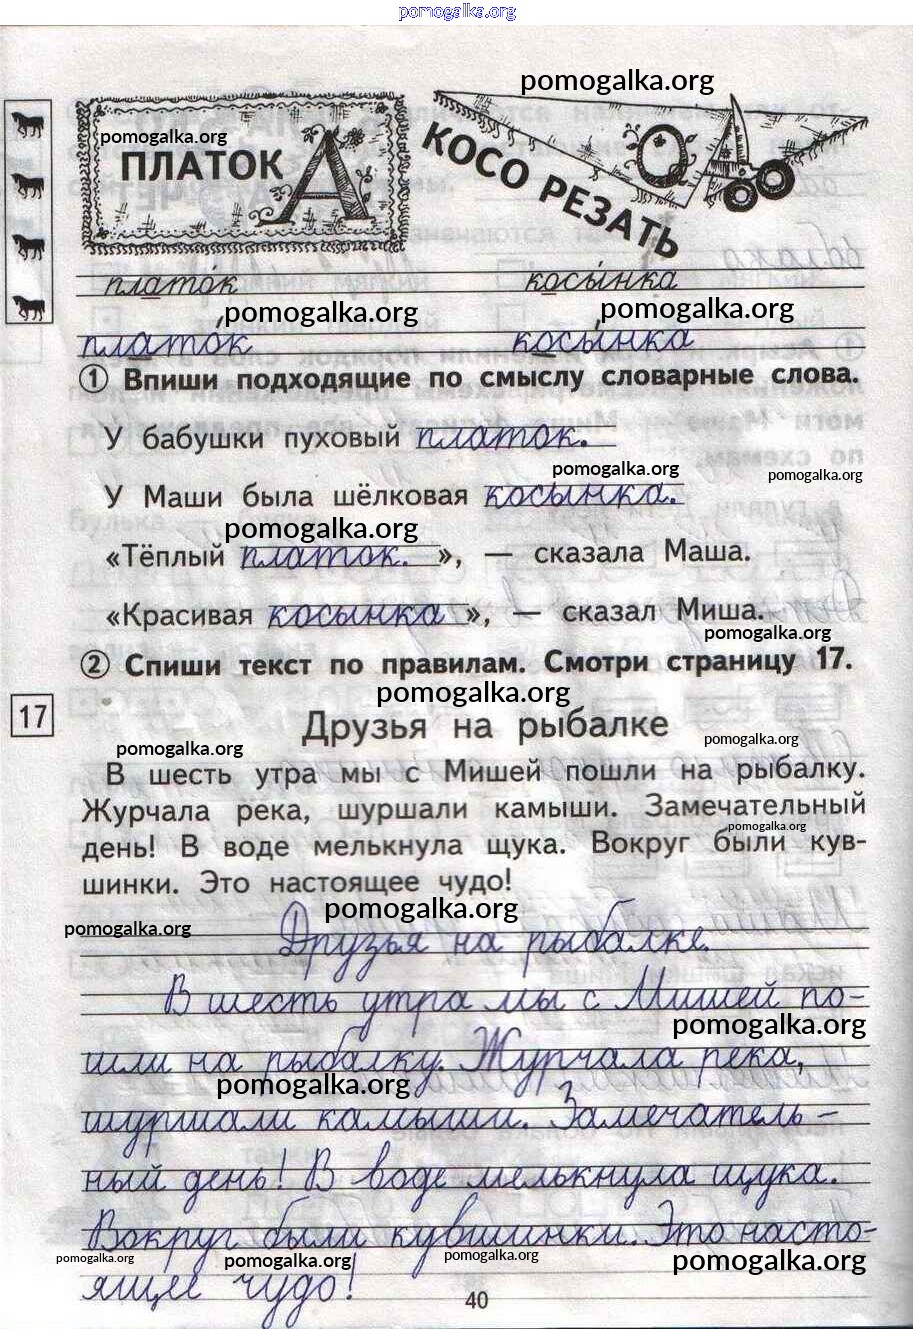 pomogalka.org
pomogalka.org
pomogalka.org
ПЛАТОК А
КОСО РЕЗАТЬ
О
платок косынка
pomogalka.org pomogalka.org
платок косынка
① Впиши подходящие по смыслу словарные слова.
У бабушки пуховый платок.
pomogalka.org pomogalka.org
У Маши была шёлковая косынка.
pomogalka.org
«Тёплый платок. », — сказала Маша.
«Красивая косынка », — сказал Миша.
pomogalka.org
② Спиши текст по правилам. Смотри страницу 17.
pomogalka.org
17
Друзья на рыбалке
pomogalka.org pomogalka.org
В шесть утра мы с Мишей пошли на рыбалку.
Журчала река, шуршали камыши. Замечательный
pomogalka.org
день! В воде мелькнула щука. Вокруг были кув-
шинки. Это настоящее чудо!
pomogalka.org
pomogalka.org
Друзья на рыбалке.
В шесть утра мы с Мишей по-
pomogalka.org
шли на рыбалку. Журчала река,
pomogalka.org
шуршали камыши. Замечатель-
ный день! В воде мелькнула щука.
Вокруг были кувшинки. Это насто-
pomogalka.org pomogalka.org pomogalka.org
ящее чудо!
40